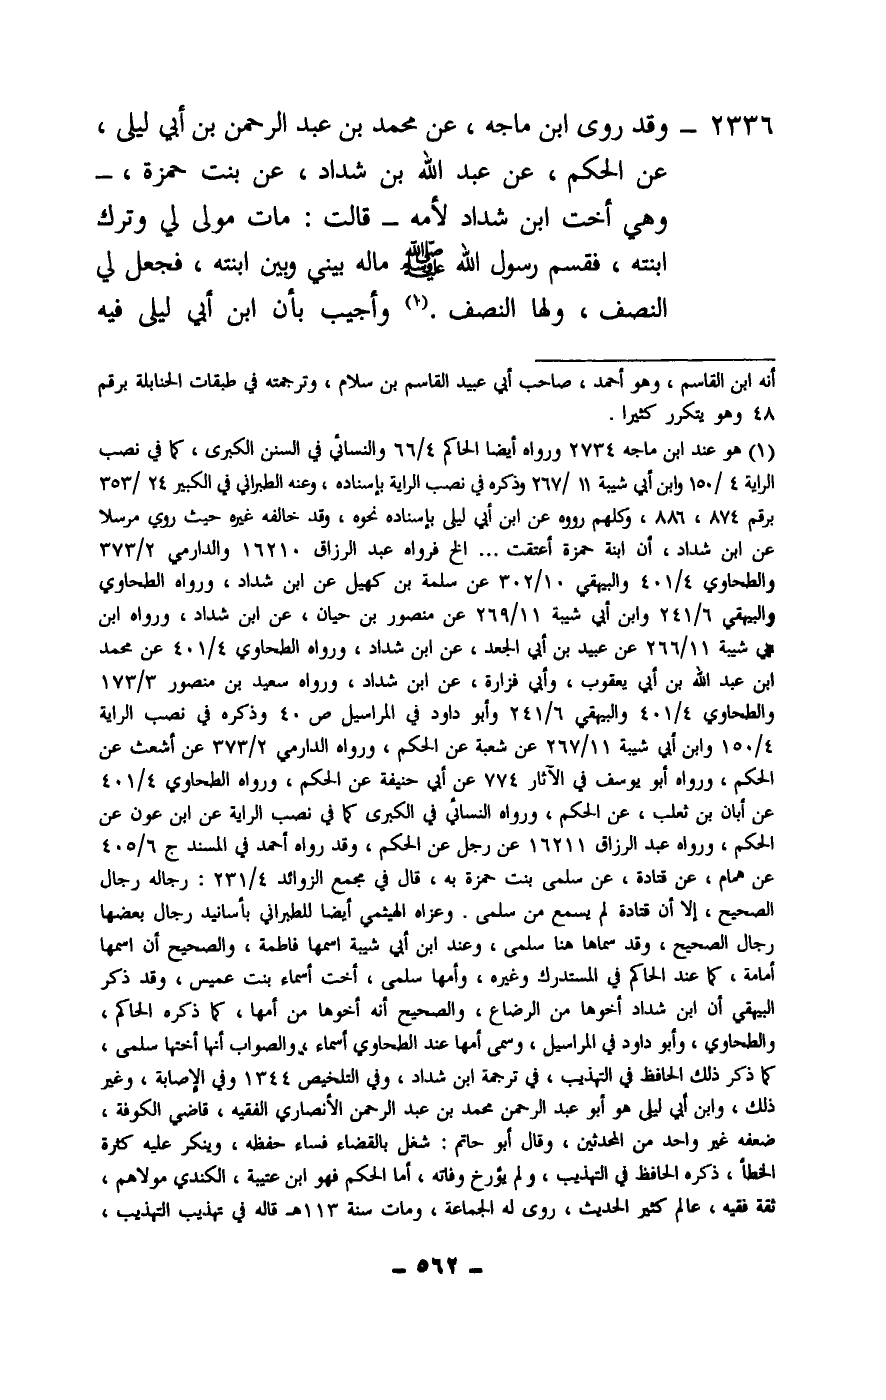 ٢٣٣٦ ــ وقد روى ابن ماجه ، عن محمد بن عبد الرحمن بن أبي ليلى ،
عن الحكم ، عن عبد الله بن شداد ، عن بنت حمزة ، ــ
وهي أخت ابن شداد لأمه ــ قالت : مات مولى لي وترك
ابنته ، فقسم رسول الله ﷺ ماله بيني وبين ابنته ، فجعل لي
النصف ، ولها النصف .(١) وأجيب بأن ابن أبي ليلى فيه
أنه ابن القاسم ، وهو أحمد ، صاحب أبي عبيد القاسم بن سلام ، وترجمته في طبقات الحنابلة برقم
٤٨ وهو يتكرر كثيرا .
(١) هو عند ابن ماجه ٢٧٣٤ ورواه أيضا الحاكم ٦٦/٤ والنسائي في السنن الكبرى ، كما في نصب
الراية ٤ /١٥٠ وابن أبي شيبة ١١ /٢٦٧ وذكره في نصب الراية بإسناده ، وعنه الطبراني في الكبير ٢٤ /٣٥٣
برقم ٨٧٤ ، ٨٨٦ ، وكلهم رووه عن ابن أبي ليلى بإسناده نحوه ، وقد خالفه غيره حيث روي مرسلا
عن ابن شداد ، أن ابنة حمزة أعتقت ... الخ فرواه عبد الرزاق ١٦٢١٠ والدارمي ٣٧٣/٢
والطحاوي ٤٠١/٤ والبيهقي ٣٠٢/١٠ عن سلمة بن كهيل عن ابن شداد ، ورواه الطحاوي
والبيهقي ٢٤١/٦ وابن أبي شيبة ٢٦٩/١١ عن منصور بن حيان ، عن ابن شداد ، ورواه ابن
أبي شيبة ٢٦٦/١١ عن عبيد بن أبي الجعد ، عن ابن شداد ، ورواه الطحاوي ٤٠١/٤ عن محمد
ابن عبد الله بن أبي يعقوب ، وأبي فزارة ، عن ابن شداد ، ورواه سعيد بن منصور ١٧٣/٣
والطحاوي ٤٠١/٤ والبيهقي ٢٤١/٦ وأبو داود في المراسيل ص ٤٠ وذكره في نصب الراية
١٥٠/٤ وابن أبي شيبة ٢٦٧/١١ عن شعبة عن الحكم ، ورواه الدارمي ٣٧٣/٢ عن أشعث عن
الحكم ، ورواه أبو يوسف في الآثار ٧٧٤ عن أبي حنيفة عن الحكم ، ورواه الطحاوي ٤٠١/٤
عن أبان بن ثعلب ، عن الحكم ، ورواه النسائي في الكبرى كما في نصب الراية عن ابن عون عن
الحكم ، ورواه عبد الرزاق ١٦٢١١ عن رجل عن الحكم ، وقد رواه أحمد في المسند ج ٤٠٥/٦
عن همام ، عن قتادة ، عن سلمى بنت حمزة به ، قال في مجمع الزوائد ٢٣١/٤ : رجاله رجال
الصحيح ، إلا أن قتادة لم يسمع من سلمى . وعزاه الهيثمي أيضا للطبراني بأسانيد رجال بعضها
رجال الصحيح ، وقد سماها هنا سلمى ، وعند ابن أبي شيبة اسمها فاطمة ، والصحيح أن اسمها
أمامة ، كما عند الحاكم في المستدرك وغيره ، وأمها سلمى ، أخت أسماء بنت عميس ، وقد ذكر
البيهقي أن ابن شداد أخوها من الرضاع ، والصحيح أنه أخوها من أمها ، كما ذكره الحاكم ،
والطحاوي ، وأبو داود في المراسيل ، وسمى أمها عند الطحاوي أسماء ، والصواب أنها أختها سلمى ،
كما ذكر ذلك الحافظ في التهذيب ، في ترجمة ابن شداد ، وفي التلخيص ١٣٤٤ وفي الإصابة ، وغير
ذلك ، وابن أبي ليلى هو أبو عبد الرحمن محمد بن عبد الرحمن الأنصاري الفقيه ، قاضي الكوفة ،
ضعفه غير واحد من المحدثين ، وقال أبو حاتم : شغل بالقضاء فساء حفظه ، وينكر عليه كثرة
الخطأ ، ذكره الحافظ في التهذيب ، و لم يؤرخ وفاته ، أما الحكم فهو ابن عتيبة ، الكندي مولاهم ،
ثقة فقيه ، عالم كثير الحديث ، روى له الجماعة ، ومات سنة ١١٣هـ قاله في تهذيب التهذيب ،
ــ ٥٦٢ ــ